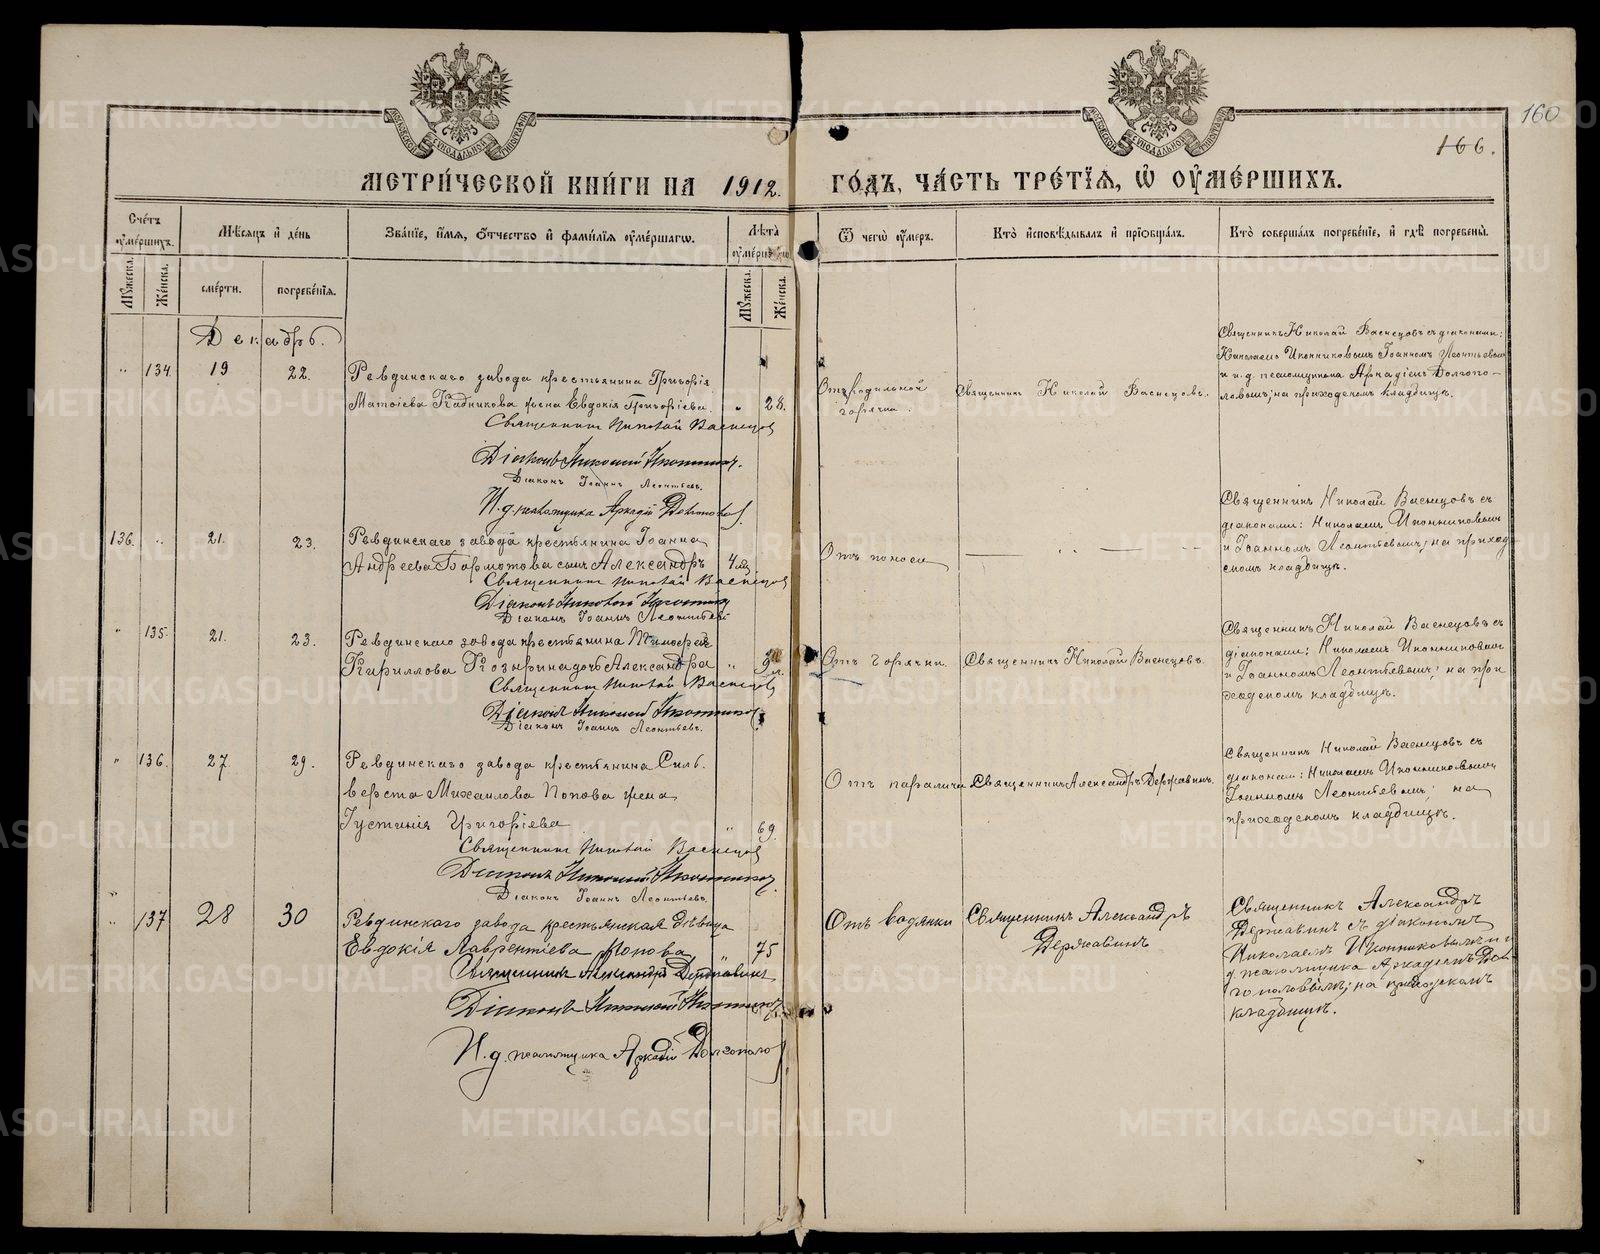 160
166.
МЕТРИ́ЧЕСКОЙ КНИ́ГИ НА 1912.
ГО́ДЪ, ЧА́СТЬ ТРЕ́ТІѦ, Ѡ ОУМЕ́РШИХЪ.
Сче́тъ оуме́ршихъ.
Му́жеска.
Же́нска.
Мѣ́сяцъ и де́нь
сме́рти.
погребе́нія.
Зва́ніе, и́мя, о́тчество и фами́лія оуме́ршагѡ.
Лѣ́та оуме́ршагѡ
Му́жеска.
Же́нска.
Ѿ чегѡ̀ оу́меръ.
Кто̀ исповѣ́дывалъ и пріобща́лъ.
Кто̀ соверша́лъ погребе́ніе, и гдѣ̀ погребены̀.
Декабрь.
" 134. 19 22.
Ревдинскаго завода крестьянина Григорія
Матѳіева Кадникова жена Евдокія Григоріева. " 28.
Священникъ Николай Васнецов
Діаконъ Николай Иконников.
Діаконъ Іоаннъ Леонтьевъ.
И. д. псаломщика Аркадій Долгополов.
Отъ родильной
горячки.
Священникъ Николай Васнецовъ.
Священникъ Николай Васнецовъ съ діаконами:
Николаемъ Иконниковымъ Іоанномъ Леонтьевым
и и. д. псаломщика Аркадіемъ Долгопо-
ловымъ; на приходскомъ кладбищѣ.
136. " 21. 23.
Ревдинскаго завода крестьянина Іоанна
Андреева Бормотова сынъ Александръ 4 мѣс
Священникъ Николай Васнецов
Діаконъ Николай Иконников
Діаконъ Іоаннъ Леонтьев
Отъ поноса
— " — "
Священникъ Николай Васнецовъ съ
діаконами: Николаемъ Иконниковым
и Іоанномъ Леонтьевымъ; на приход-
скомъ кладбищѣ.
" 135. 21. 23.
Ревдинскаго завода крестьянина Тимофея
Кириллова Козырина дочь Александра " 9
Священникъ Николай Васнецов
Діаконъ Николай Иконников
Діаконъ Іоаннъ Леонтьевъ.
Отъ горячки.
Священникъ Николай Васнецовъ.
Священникъ Николай Васнецовъ съ
діаконами: Николаемъ Иконниковым
и Іоанномъ Леонтьевымъ; на при
ходскомъ кладбищѣ.
" 136. 27. 29.
Ревдинскаго завода крестьянина Силь-
верста Михаилова Попова жена
Іустинія Григоріева " 69.
Священникъ Николай Васнецов
Діаконъ Николай Иконников
Діаконъ Іоаннъ Леонтьевъ.
Отъ паралича
Священникъ Александръ Державинъ.
Священникъ Николай Васнецовъ съ
діаконами: Николаемъ Иконниковым
Іоанномъ Леонтьевымъ; на
приходскомъ кладбищѣ.
" 137 28 30
Ревдинскаго завода крестьянская дѣвица
Евдокія Лаврентіева Попова 75
Священникъ Александръ Державинъ
Діаконъ Николай Иконников
И. д. псаломщика Аркадій Долгополов
Отъ водянки
Священникъ Александръ
Державинъ
Священникъ Александръ
Державинъ съ діакономъ
Николаемъ Иконниковымъ и и.
д. псаломщика Аркадіемъ Дол
гополовымъ; на приходскомъ
кладбищѣ.
METRIKI.GASO-URAL.RU